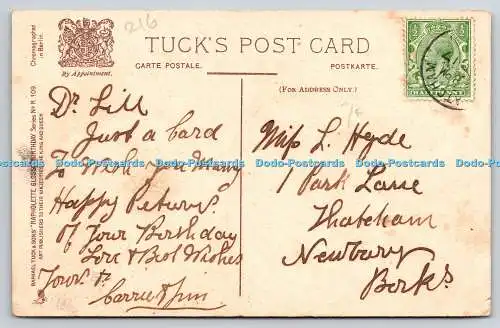 216
TUCK'S POST CARD
By Appointment.
CARTE POSTALE.
POSTKARTE.
(FOR ADDRESS ONLY.)
Chromographed
in Berlin.
RAPHAEL TUCK & SONS' "RAPHOLETTE GLOSSO" BIRTHDAY Series No R. 109.
ART PUBLISHERS TO THEIR MAJESTIES THE KING AND QUEEN
HALFPENNY
Dr Lill
Just a card
To Wish You Many
Happy Returns
Of Your Birthday
Love & Best Wishes
Yours Tr
Carrie & Jim
Miss L. Hyde
1 Park Lane
Thatcham
Newbury
Berks
Dodo-Postcards Dodo-Postcards Dodo-Postcards Dodo-Postcards Dodo-Postcards